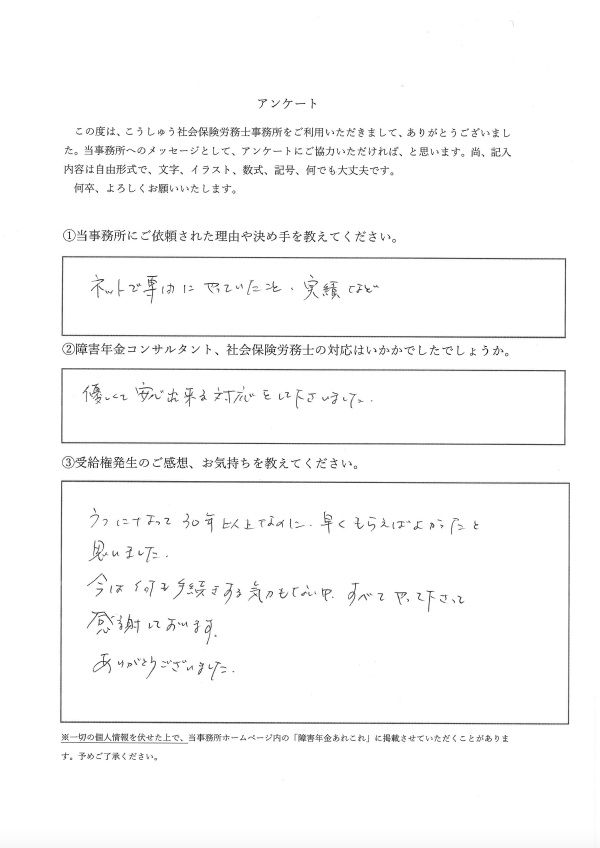 アンケート
この度は、こうしゅう社会保険労務士事務所をご利用いただきまして、ありがとうございまし
た。当事務所へのメッセージとして、アンケートにご協力いただければ、と思います。尚、記入
内容は自由形式で、文字、イラスト、数式、記号、何でも大丈夫です。
何卒、よろしくお願いいたします。
①当事務所にご依頼された理由や決め手を教えてください。
ネットで専門にやっていたこと、実績など
②障害年金コンサルタント、社会保険労務士の対応はいかがでしたでしょうか。
優しくて安心出来る対応をして下さいました。
③受給権発生のご感想、お気持ちを教えてください。
うつになって30年以上なのに、早くもらえばよかったと
思いました。
今は何も手続きする気力もない中、すべてやって下さって
感謝しております。
ありがとうございました。
※一切の個人情報を伏せた上で、当事務所ホームページ内の「障害年金あれこれ」に掲載させていただくことがありま
す。予めご了承ください。